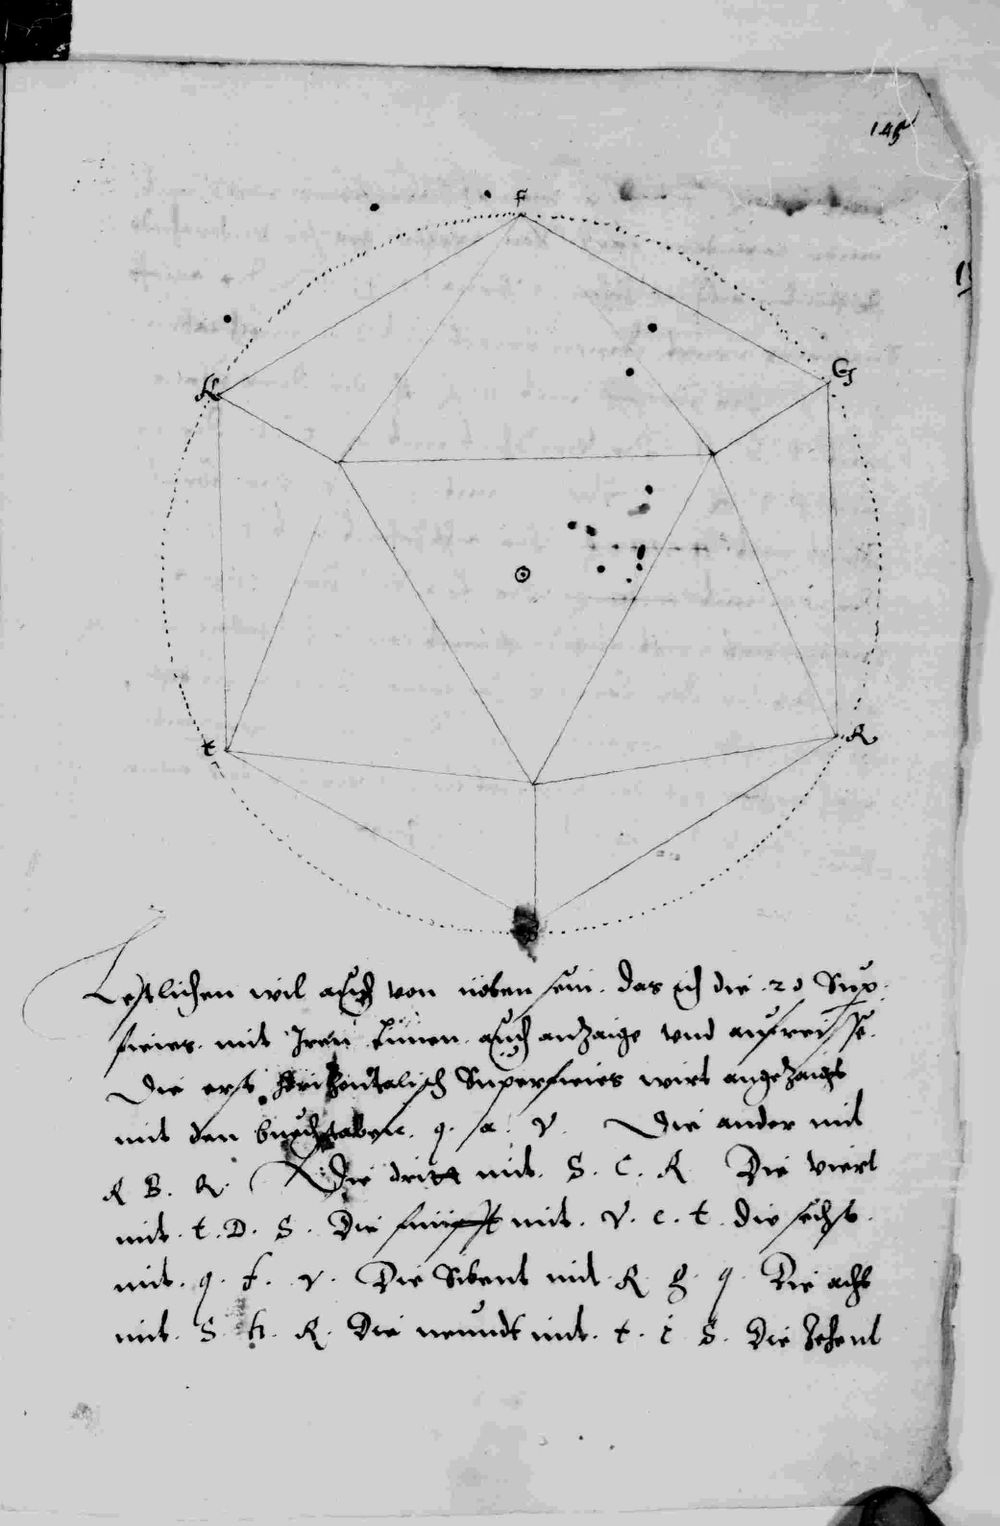 145
F
G
K
t
R
Lestlichen wil auch von nöten sein. das ich die .20 Sup.
ficies. mit Iren Linien. auch anzaige vnd aufreisse.
Die erst Horizontalisch Superficies wirt angezaigt
mit den buechstaben. q. a. V. Die ander mit
R B. Q. Die dritt mit. S. C. R Die viert
mit. t. D. S. Die fünfft mit. V. e. t. die sechst.
mit. q. f. v. Die Sibent mit R g. q Die acht
mit. S h. R. Die neundt mit. t. i S. Die Zehent